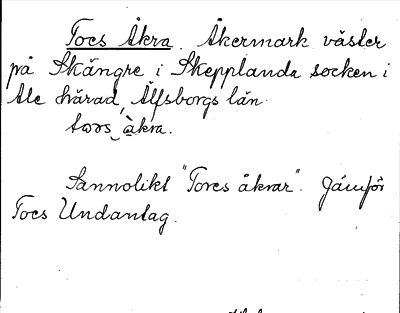 Toes Åkra. Åkermark väster
på Skängre i Skepplanda socken i
Ale härad, Älfsborgs län.
åkra.
Sannolikt "Tores åkrar". Jämför
Toes Undantag.